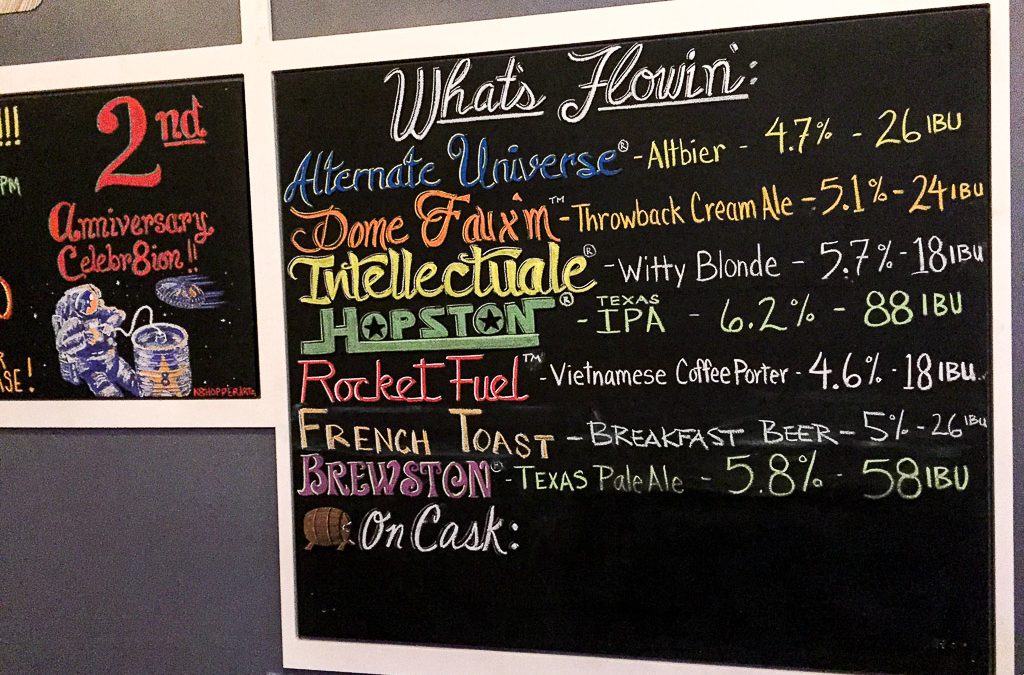 !!!
PM
2nd
Anniversary
Celebr8ion!!
SE!
8
What's Flowin':
Alternate Universe® - Altbier - 4.7% - 26 IBU
Dome Faux'm™ - Throwback Cream Ale - 5.1% - 24 IBU
Intellectuale® - Witty Blonde - 5.7% - 18 IBU
HOPSTON® - TEXAS IPA - 6.2% - 88 IBU
Rocket Fuel™ - Vietnamese Coffee Porter - 4.6% - 18 IBU
FRENCH TOAST - BREAKFAST BEER - 5% - 26 IBU
BREWSTON® - TEXAS Pale Ale - 5.8% - 58 IBU
On Cask: